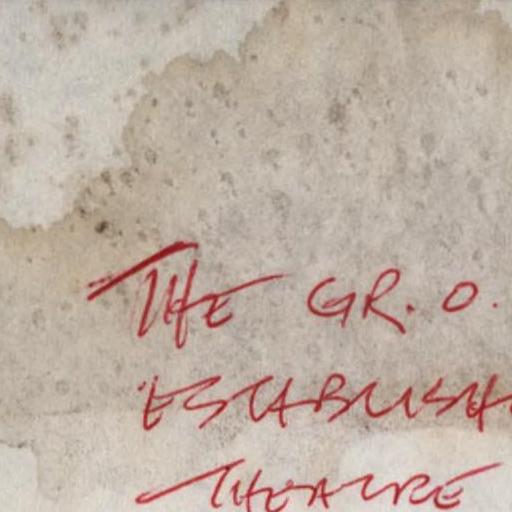 THE GR. O.
ESTABLISH
THEATRE